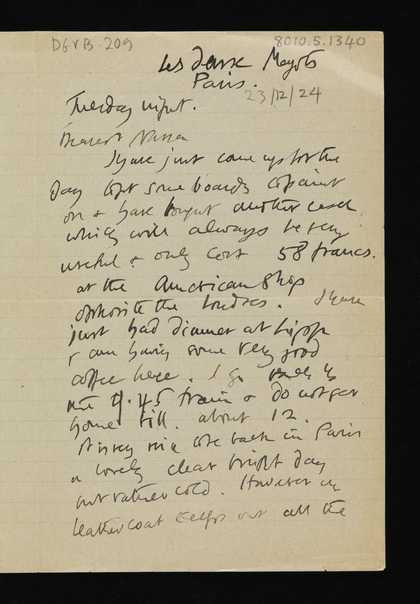 DGVB-209
8010.5.1340
Les deux Magots
Paris.
23/12/24
Tuesday night.
Dearest Nessa
I have just come up for the
day to get some boards to paint
on & have bought another easel
which will always be very
useful & only cost 58 francs.
at the American Shop
opposite the Londres. I have
just had dinner at Lipps
& am having some very good
coffee here. I go back by
the 9.45 train & do not get
home till about 12.
It is very nice to be back in Paris
a lovely clear bright day
but rather cold. However my
leather coat keeps out all the